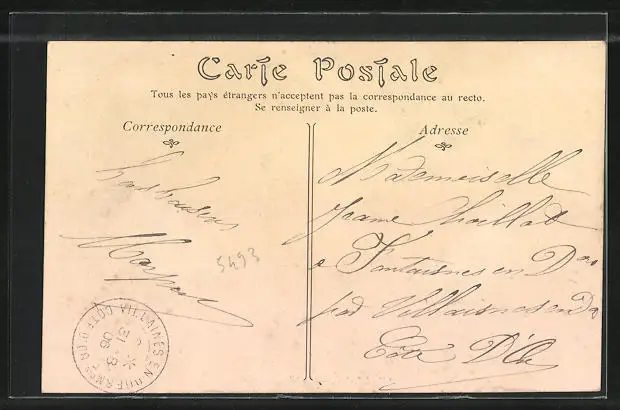 Carte Postale
Tous les pays étrangers n'acceptent pas la correspondance au recto.
Se renseigner à la poste.
Correspondance
Adresse
bons baisers
5493
Mademoiselle
Jeanne
Fontaines en D
par Villaines en D
Côte D'Or
VILLAINES-EN-DUESMOIS
CÔTE D'OR
31 -8
06